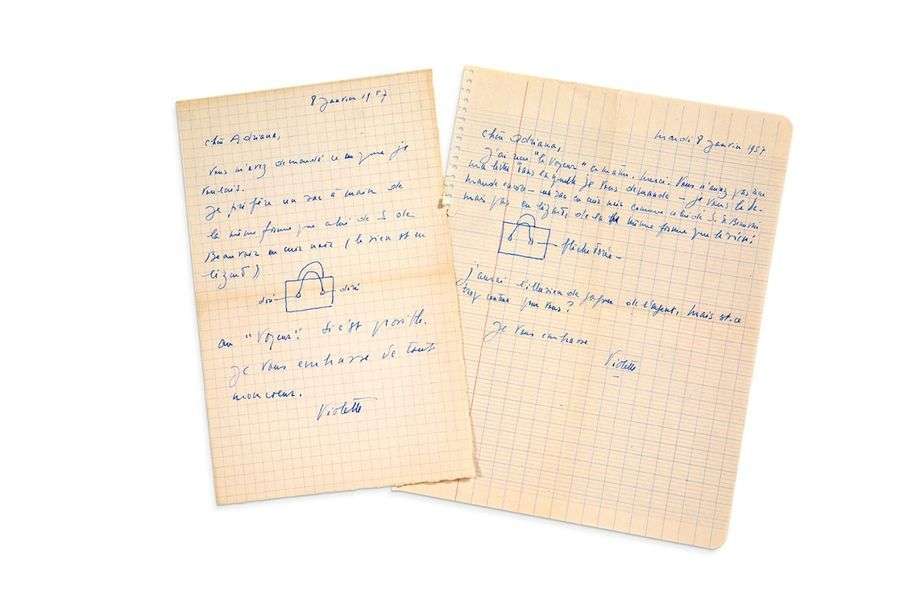 8 janvier 1957
Chère Adriana,
Vous m'avez demandé ce que je
voulais.
Je préfère un sac à main de
la même forme que celui de S. de
Beauvoir en cuir noir (le sien est en
lézard)
doré doré
ou "Voyeur". Si c'est possible.
Je vous embrasse de tout
mon cœur.
Violette
mardi 8 janvier 1957
Chère Adriana,
J'ai reçu "le Voyeur" ce matin, merci. Vous n'aurez pas eu
ma lettre dans laquelle je vous demande – je vous le de-
mande encore – un sac en cuir noir comme celui de S. de Beauvoir
mais pas en lézard, de la même forme que le sien :
J'aurai l'illusion de de l'argent, mais est-ce
trop pour vous ?
Je vous embrasse
Violette